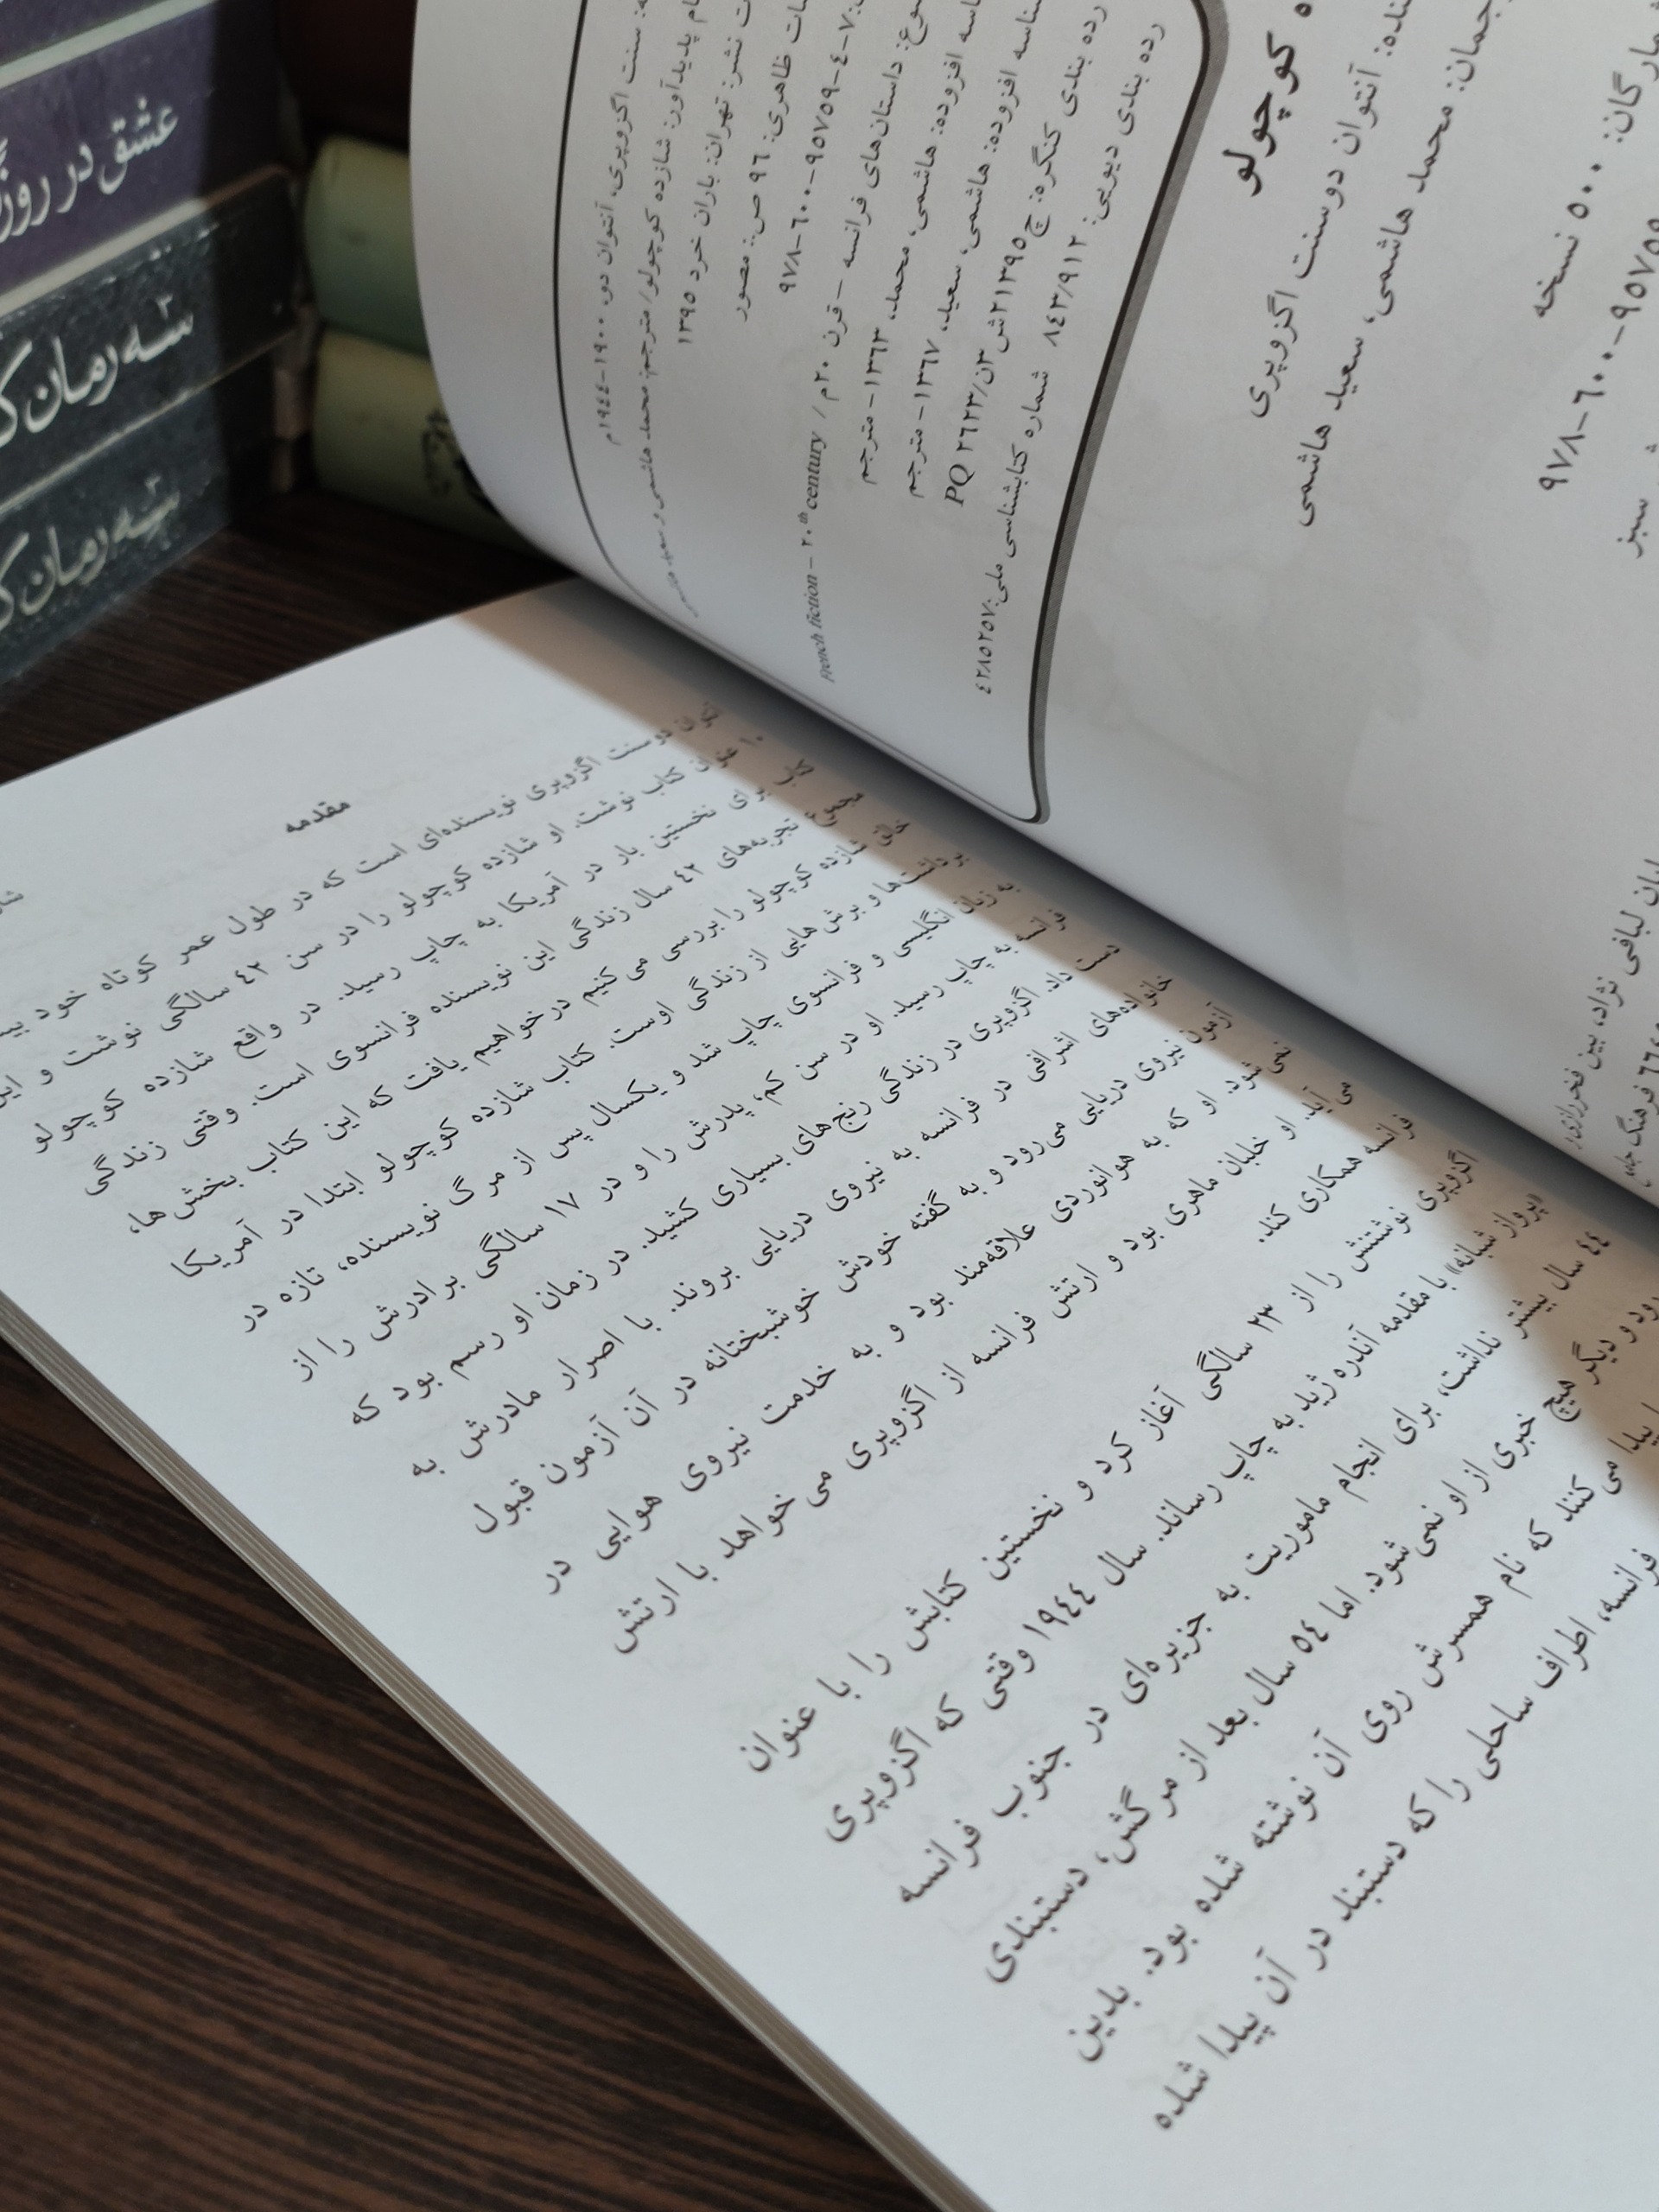 عشق در روزگ
سه رمان ک
سه رمان ک
سنت اگزوپری، آنتوان دو، ۱۹۰۰-۱۹۴۴م
پدیدآور: شازده کوچولو/ مترجم: محمد هاشمی و سعید هاشمی
نشر: تهران: باران خرد ۱۳۹۵
ظاهری: ۹۶ ص.: مصور
۹۷۸-۶۰۰-۹۵۷۵۹-۴-۷
داستان‌های فرانسه - قرن ۲۰م /
French fiction – ۲۰th century
افزوده: هاشمی، محمد، ۱۳۶۳- مترجم
افزوده: هاشمی، سعید، ۱۳۶۷- مترجم
رده بندی کنگره: PQ ۲۶۲۳/ن۳ش۲۱۳۹۵ج
رده بندی دیویی: ۸۴۳/۹۱۲ شماره کتابشناسی ملی: ۴۲۸۵۲۵۷
ه کوچولو
آنتوان دوسنت اگزوپری
محمد هاشمی، سعید هاشمی
۵۰۰ نسخه
۹۷۸-۶۰۰-۹۵۷۵۹
سبز
لبافی نژاد، بین فخررازی
مقدمه
آنتوان دوسنت اگزوپری نویسنده‌ای است که در طول عمر کوتاه خود
۱۰ عنوان کتاب نوشت. او شازده کوچولو را در سن ۴۲ سالگی نوشت و این
کتاب برای نخستین بار در آمریکا به چاپ رسید. در واقع شازده کوچولو
مجموع تجربه‌های ۴۲ سال زندگی این نویسنده فرانسوی است. وقتی زندگی
خالق شازده کوچولو را بررسی می کنیم درخواهیم یافت که این کتاب بخش ها،
برداشت‌ها و برش هایی از زندگی اوست. کتاب شازده کوچولو ابتدا در آمریکا
به زبان انگلیسی و فرانسوی چاپ شد و یکسال پس از مرگ نویسنده، تازه در
فرانسه به چاپ رسید. او در سن کم، پدرش را و در ۱۷ سالگی برادرش را از
دست داد. اگزوپری در زندگی رنج‌های بسیاری کشید. در زمان او رسم بود که
خانواده‌های اشرافی در فرانسه به نیروی دریایی بروند. با اصرار مادرش به
آزمون نیروی دریایی می‌رود و به گفته خودش خوشبختانه در آن آزمون قبول
نمی شود. او که به هوانوردی علاقه‌مند بود و به خدمت نیروی هوایی در
می آید. او خلبان ماهری بود و ارتش فرانسه از اگزوپری می خواهد با ارتش
فرانسه همکاری کند.
اگزوپری نوشتنش را از ۲۳ سالگی آغاز کرد و نخستین کتابش را با عنوان
«پرواز شبانه» با مقدمه آندره ژید به چاپ رساند. سال ۱۹۴۴ وقتی که اگزوپری
۴۴ سال بیشتر نداشت، برای انجام ماموریت به جزیره‌ای در جنوب فرانسه
رود و دیگر هیچ خبری از او نمی شود. اما ۵۴ سال بعد از مرگش، دستبندی
پیدا می کنند که نام همسرش روی آن نوشته شده بود. بدین
فرانسه، اطراف ساحلی را که دستبند در آن پیدا شده